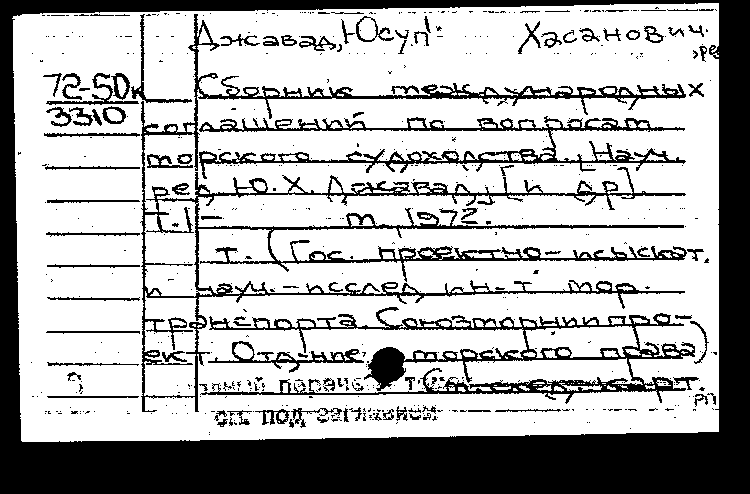 Джавад, Юсуп Хасанович,
ред
72-50к
3310
Сборник международных
соглашений по вопросам
морского судоходства. Науч.
ред. Ю.Х. Джавад, [и др].
Т.1- М., 1972.
т. (Гос. проектно-изыскат.
и науч.-исслед ин-т мор.
транспорта. Союзморниипро-
ект. Отд-ние морского права).
См. след. карт.
РП
см. под заглавием